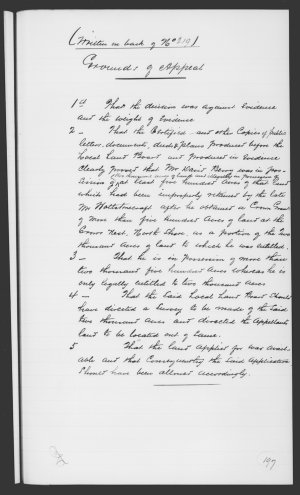 (Written on back of No 219)
Grounds of Appeal
1st That the decision was against evidence
and the weight of evidence
2 - That the Certified and other Copies of public
letters, documents, deeds & plans produced before the
Local Land Board and produced in evidence
clearly proved that Mr. Berry was in pos-
session of at least five hundred acres of that land
which had been improperly retained by the late
Mr Wollstonecraft after he obtained in Crown Grant
of more than five hundred Acres of land at the
Crows Nest, North Shore, as a portion of the two
thousand Acres of land to which he was entitled.
3 - That he is in possession of more than
two thousand five hundred acres whereas he is
only legally entitled to two thousand acres
4 - That the said Local Land Board should
have directed a survey to be made of the said
two thousand acres and directed the Appellants
land to be located out of same.
5 That the land applied for was avail-
able and that Consequently the said Application
should have been allowed accordingly.
197